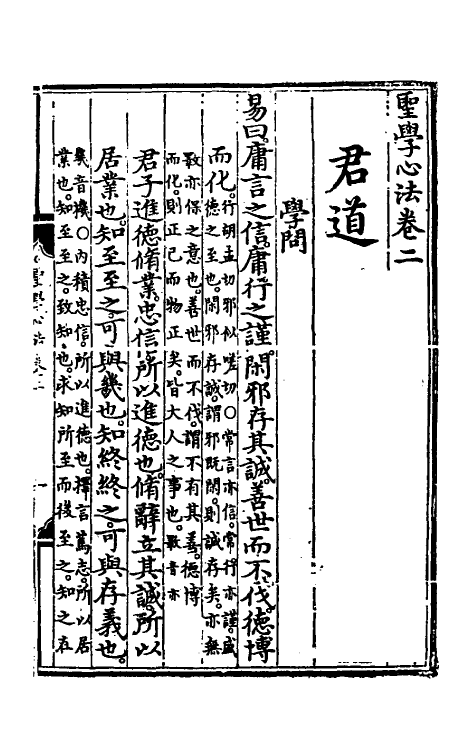 聖學心法卷二
君道
學問
易曰庸言之信庸行之謹閑邪存其誠善世而不伐德博
而化行胡孟切邪似嗟切○常言亦信常行亦謹盛
德之至也閑邪存誠謂邪既閑則誠存矣亦無
斁亦保之意也善世而不伐謂不有其善德博
而化則正己而物正矣皆大人之事也斁音亦
君子進德脩業忠信所以進德也脩辭立其誠所以
居業也知至至之可與幾也知終終之可與存義也
幾音機○內積忠信所以進德也擇言篤志所以居
業也知至至之致知也求知所至而後至之知之在
聖學心法卷二
一